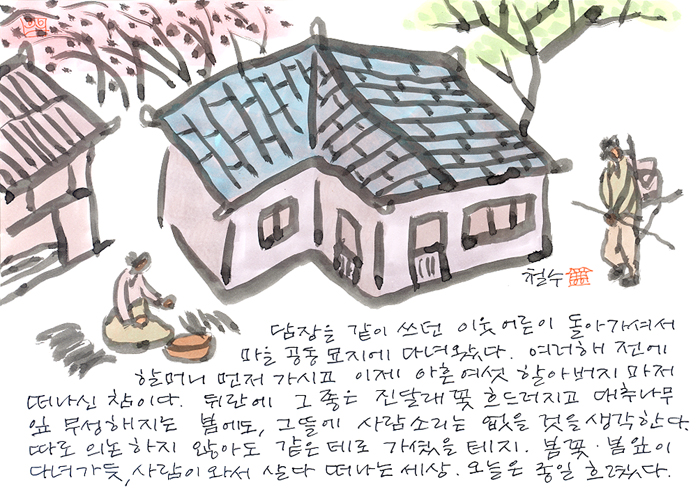 철수
담장을 같이 쓰던 이웃어른이 돌아가셔서
마을 공동묘지에 다녀왔다. 여러해 전에
할머니 먼저 가시고 이제 아흔여섯 할아버지 마저
떠나신 참이다. 뒤란에 그 좋은 진달래꽃 흐드러지고 대추나무
잎 무성해지는 봄에도, 그뜰에 사람소리는 없을 것을 생각한다.
따로 의논하지 않아도 같은 데로 가셨을 테지. 봄꽃·봄잎이
다녀가듯, 사람이 와서 살다 떠나는 세상. 오늘은 종일 흐렸다.